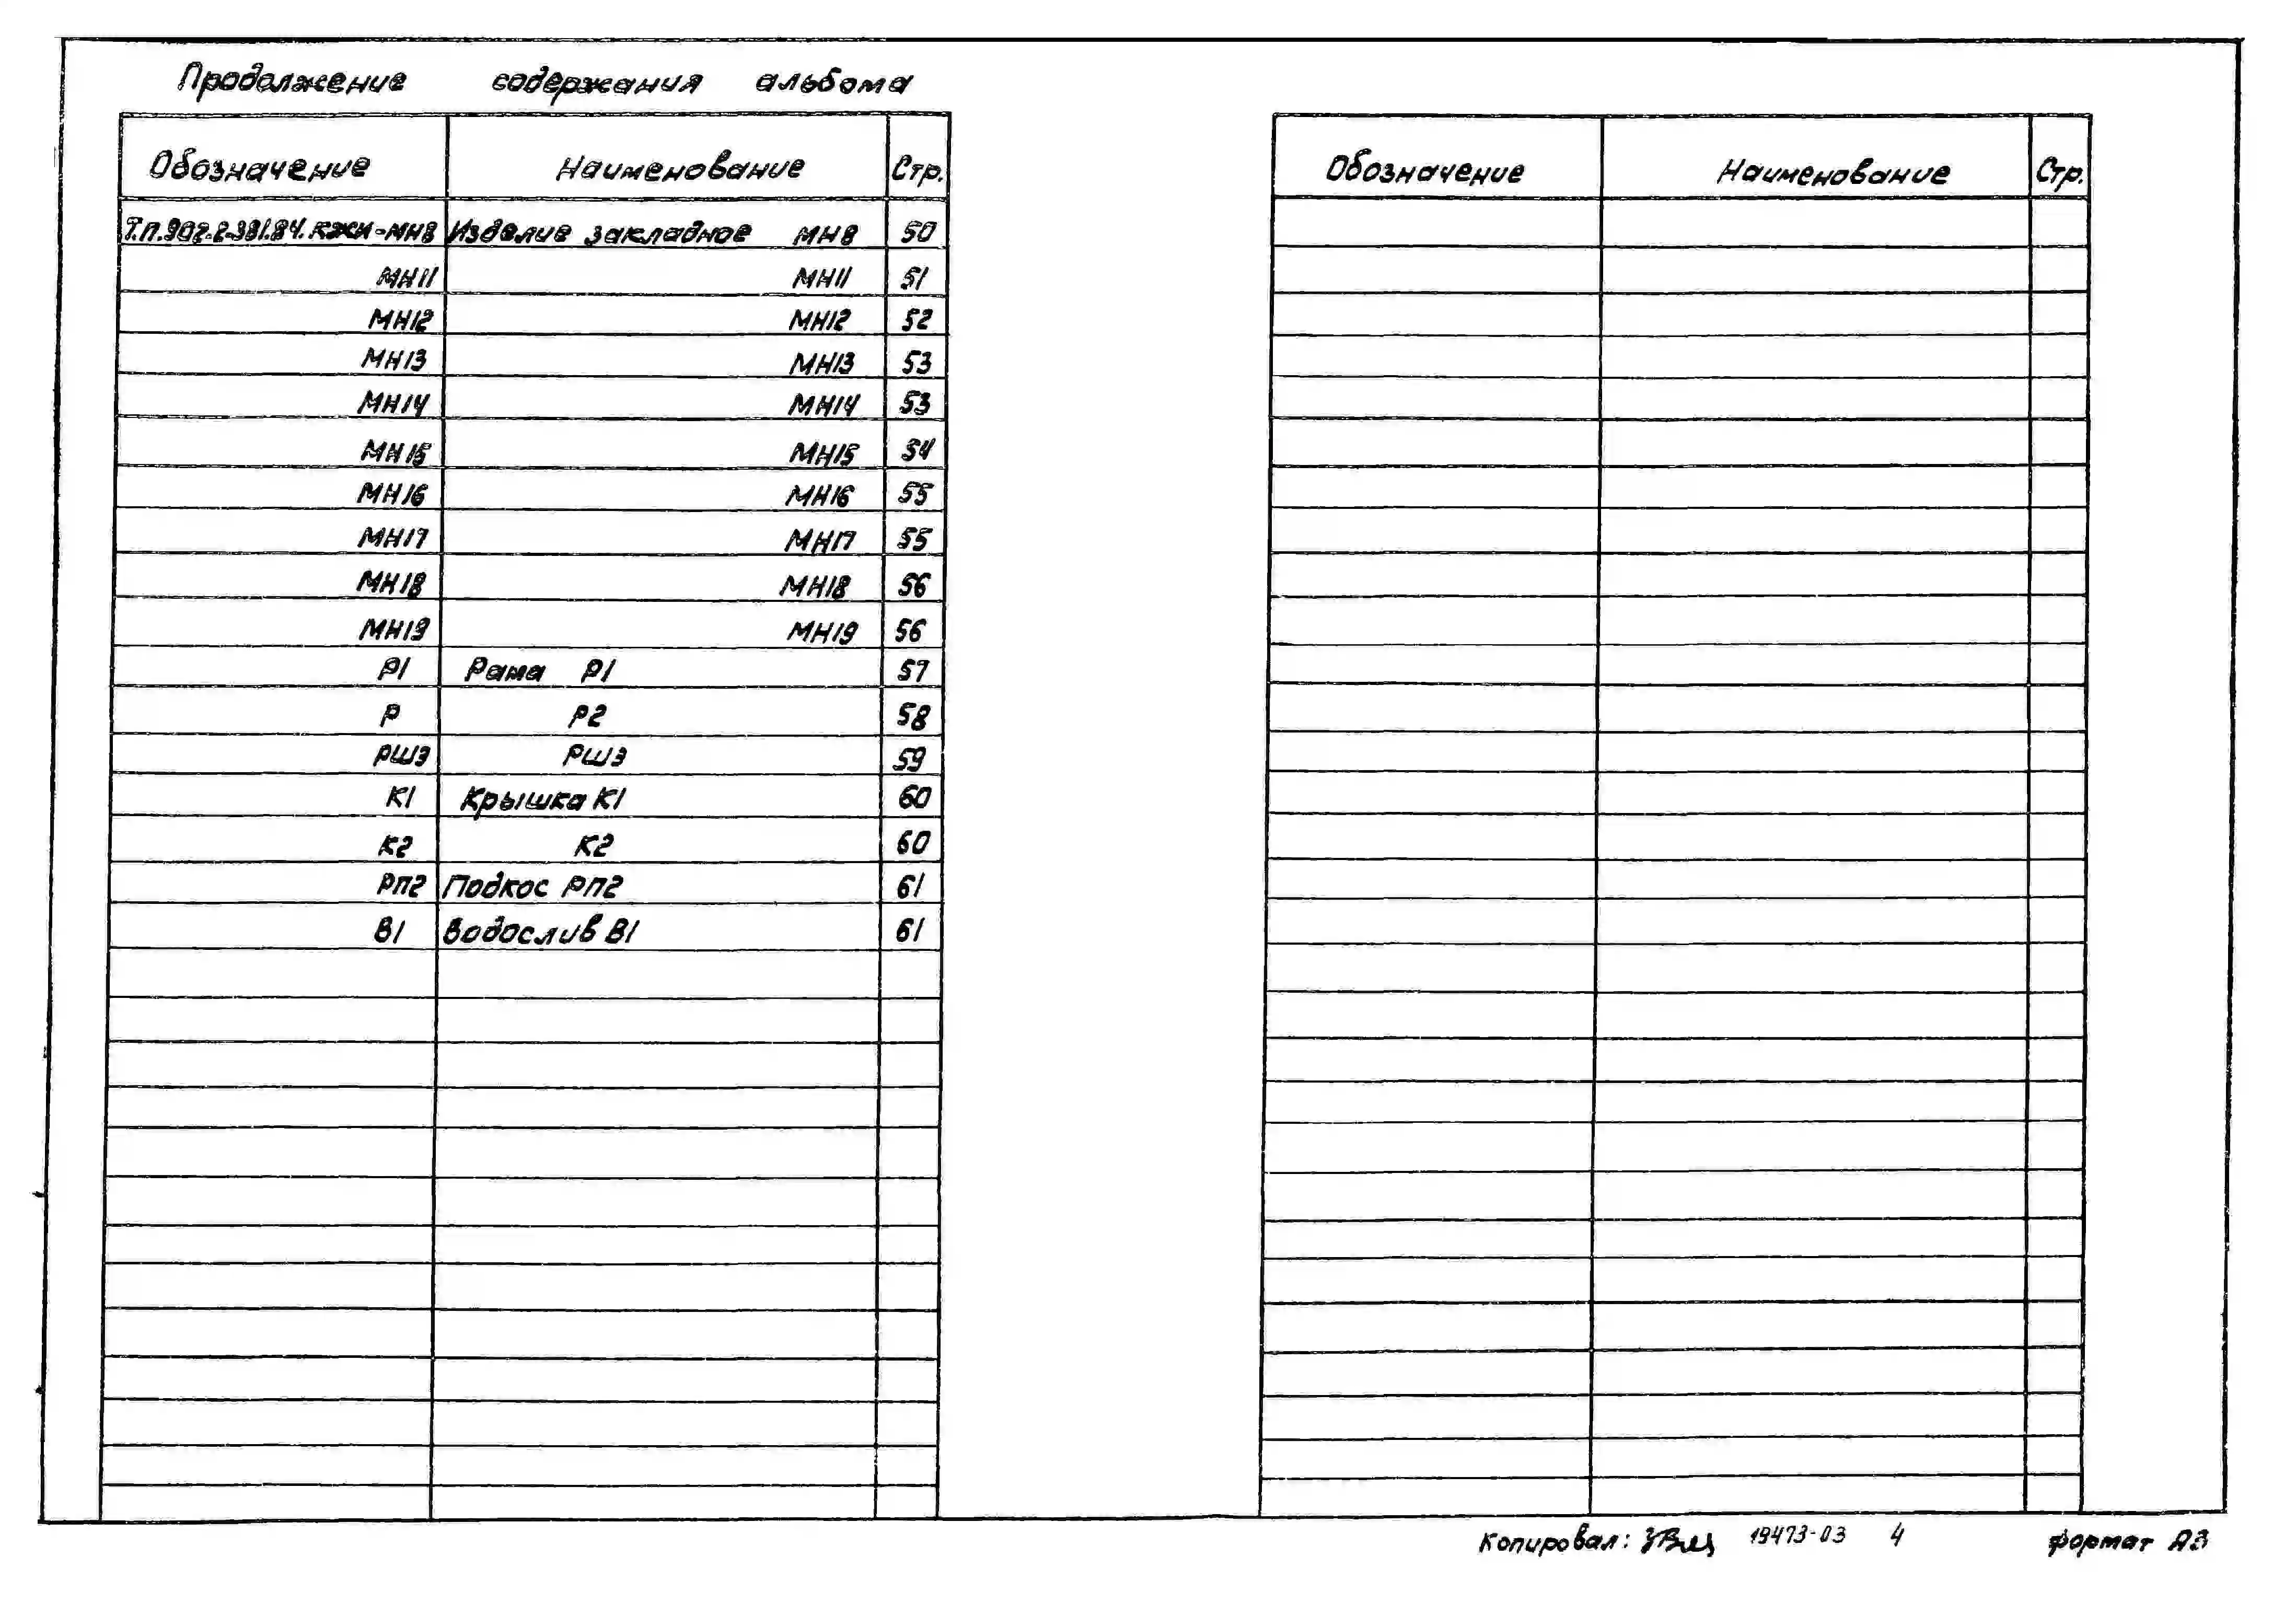 Продолжение содержания альбома
Обозначение Наименование Стр.
Т.П.902-2-381.84.КЖИ-МН8 Изделие закладное МН8 50
МН11 МН11 51
МН12 МН12 52
МН13 МН13 53
МН14 МН14 53
МН15 МН15 54
МН16 МН16 55
МН17 МН17 55
МН18 МН18 56
МН19 МН19 56
Р1 Рама Р1 57
Р Р2 58
РШ3 РШ3 59
К1 Крышка К1 60
К2 К2 60
РП2 Подкос РП2 61
В1 Водослив В1 61
Обозначение Наименование Стр.
Копировал: 19473-03 4 формат А3